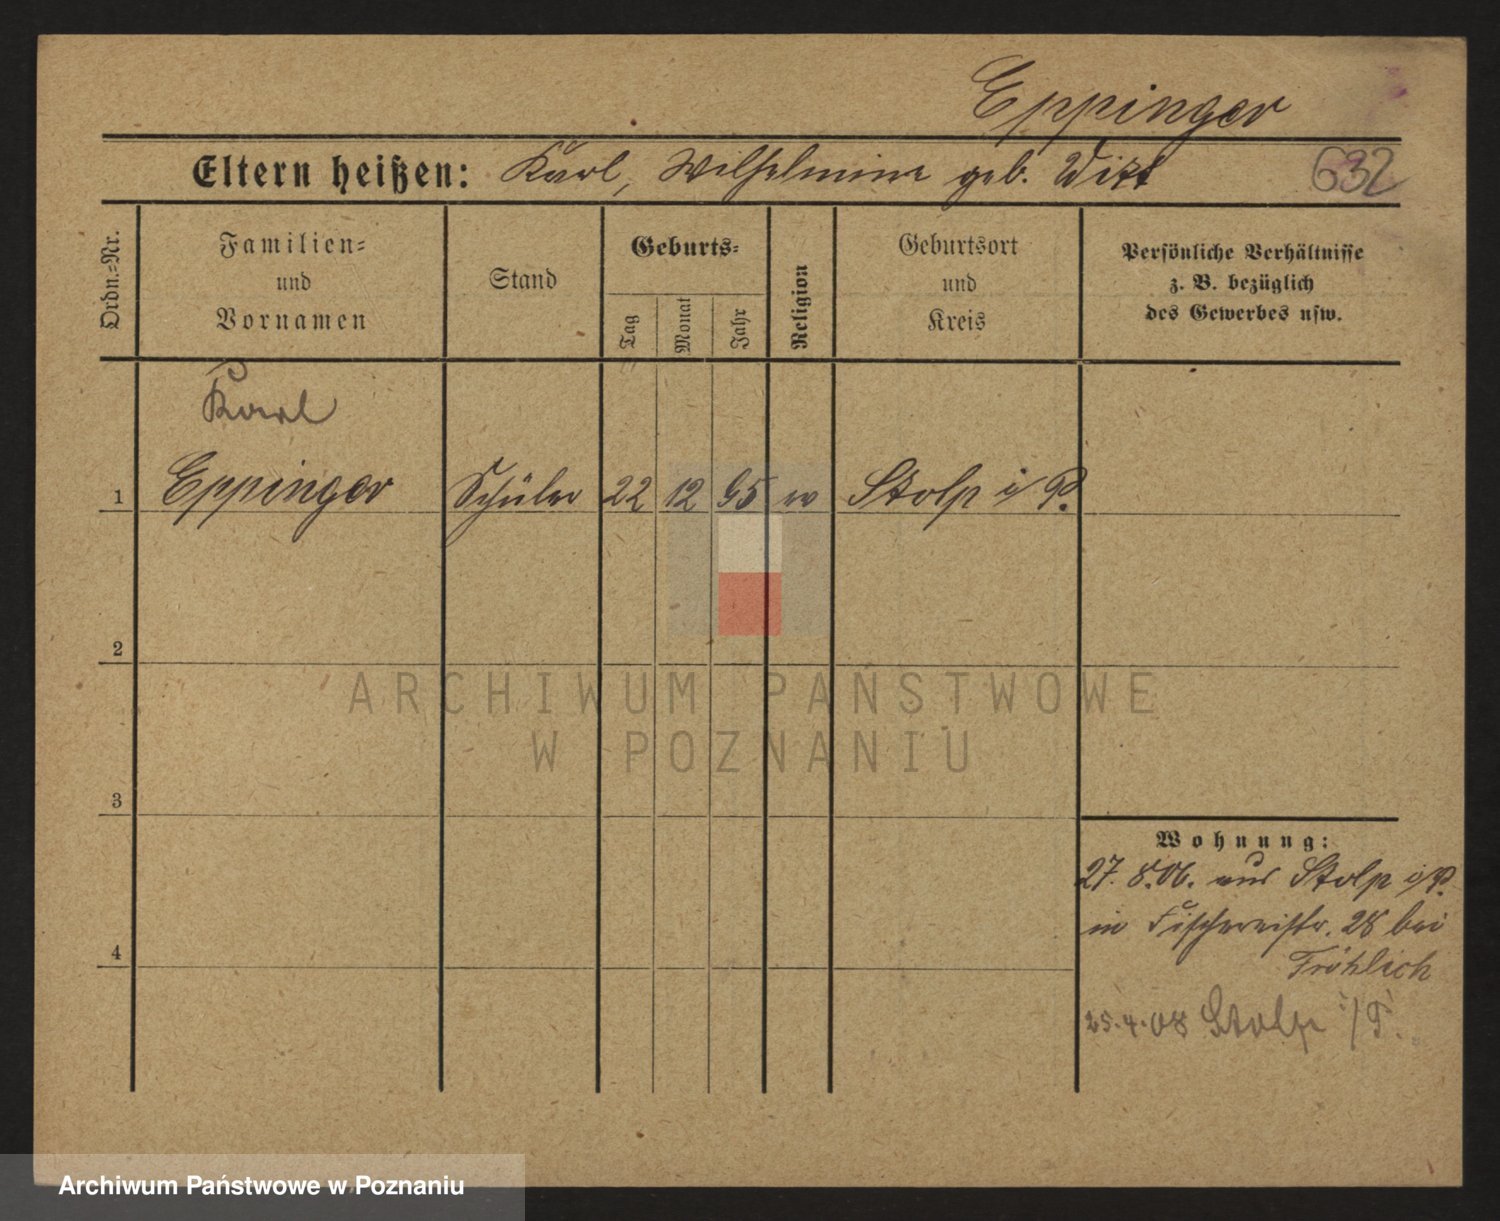 Eppinger
Eltern heißen: Karl, Wilhelmine geb. Witt
632
Ordn.=Nr.
Familien=
und
Vornamen
Stand
Geburts=
Tag
Monat
Jahr
Religion
Geburtsort
und
Kreis
Persönliche Verhältnisse
z. B. bezüglich
des Gewerbes usw.
Karl
1 Eppinger Schüler 22 12 95 ev Stolp i/P.
2
ARCHIWUM PAŃSTWOWE
W POZNANIU
3
Wohnung:
27. 8. 06. aus Stolp i/P.
in Fischereistr. 28 bei
Fröhlich
4
25.4.08 Stolp i/P.
Archiwum Państwowe w Poznaniu